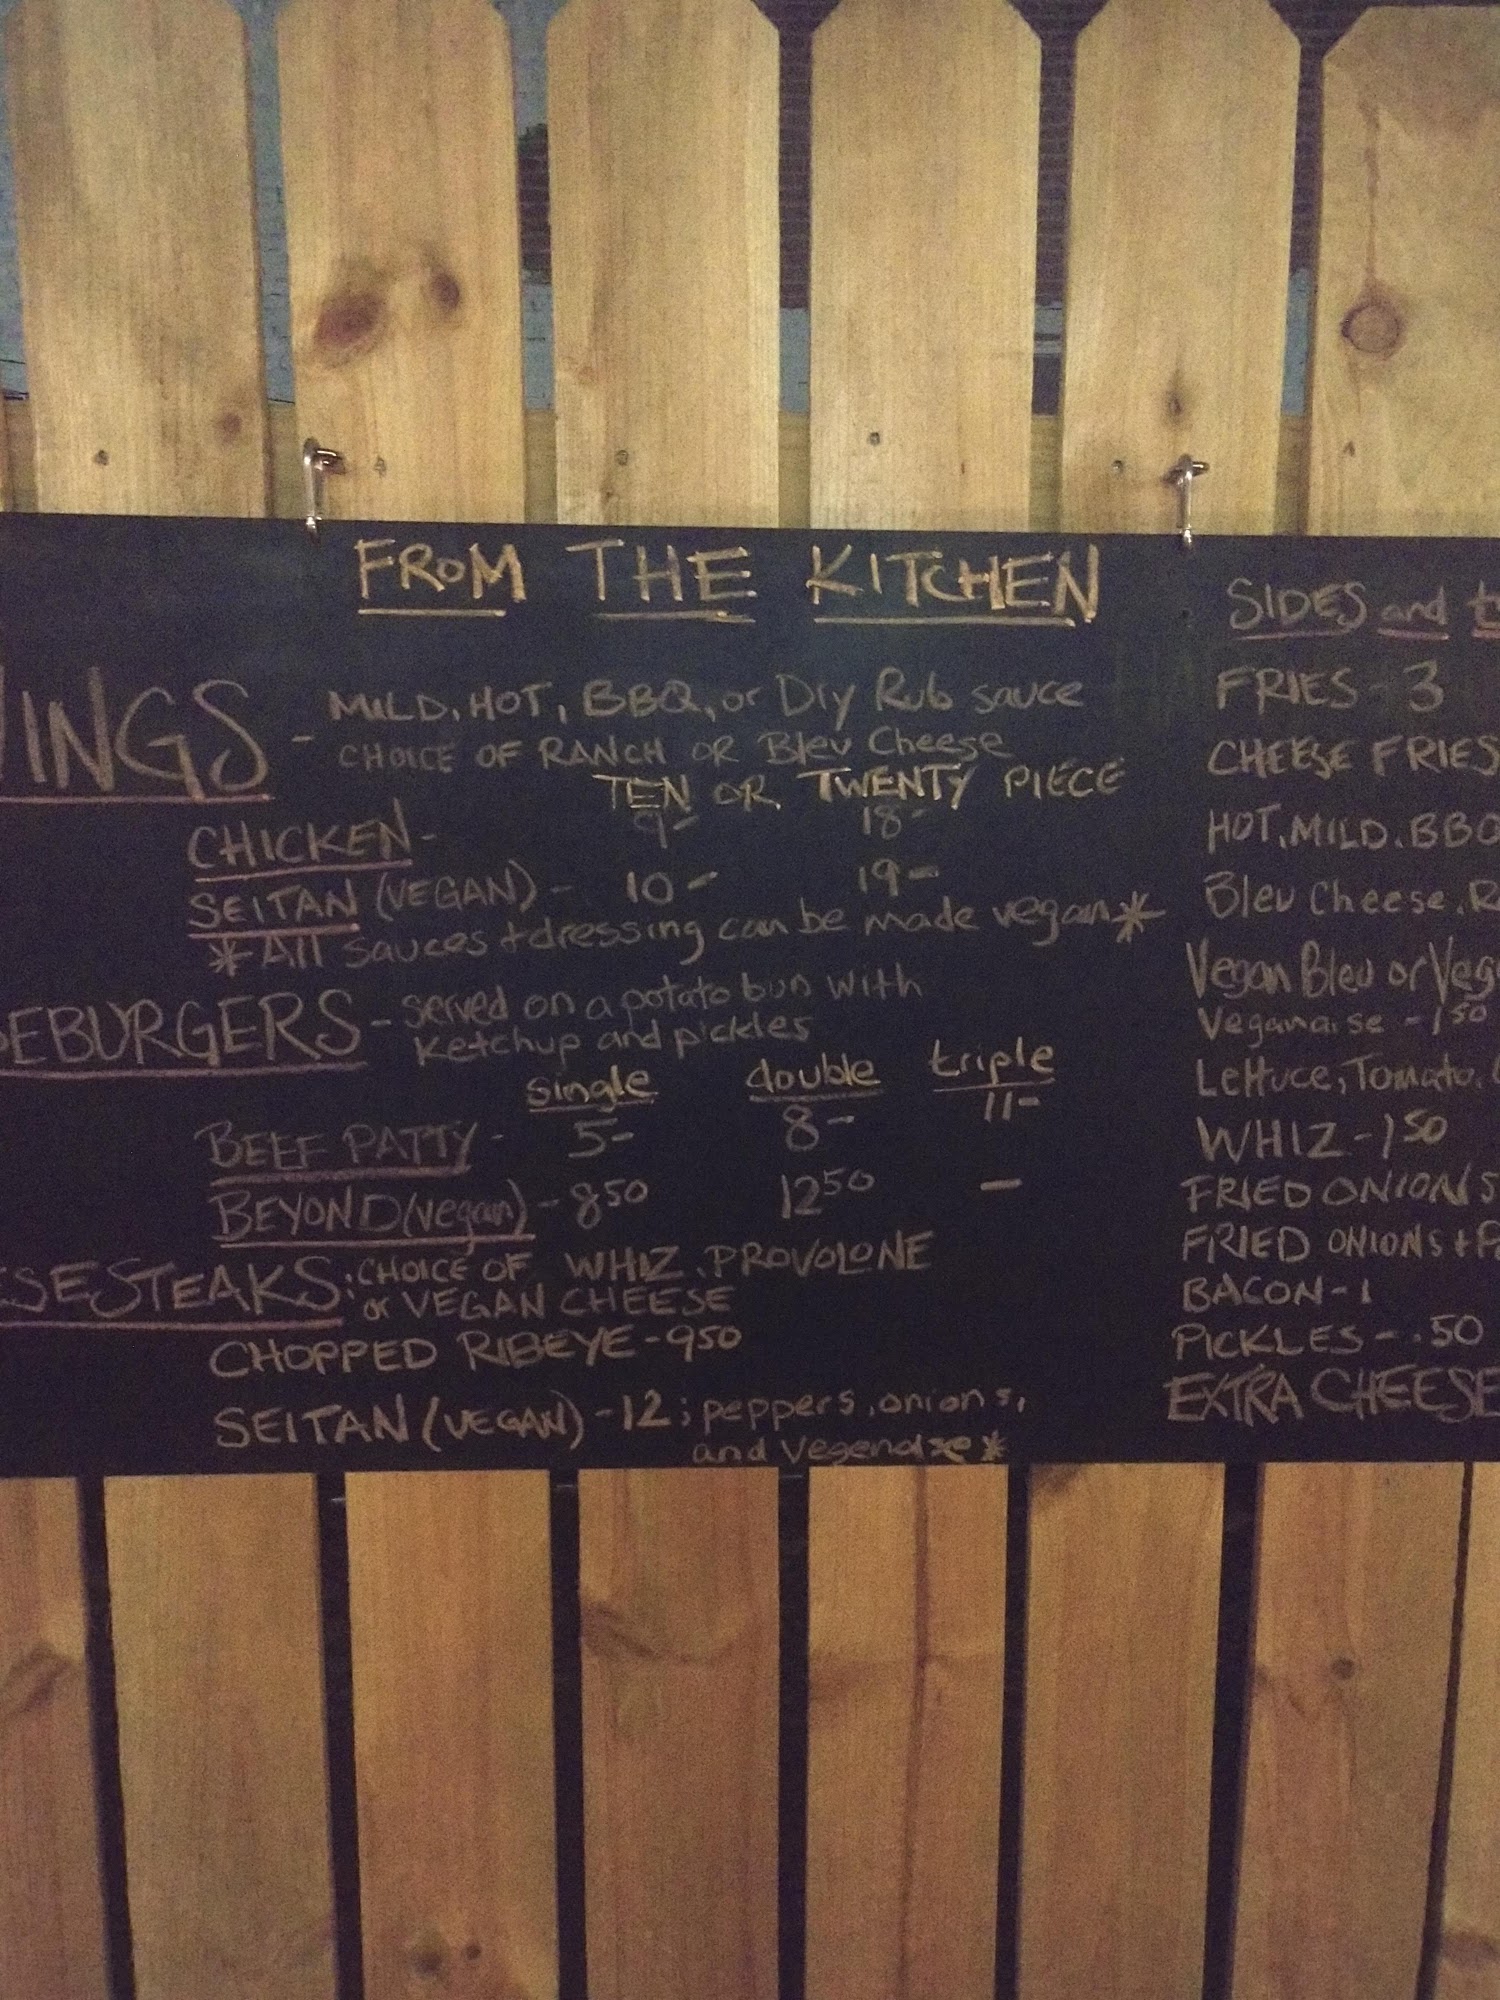 FROM THE KITCHEN
WINGS - MILD, HOT, BBQ, or Dry Rub sauce
CHOICE OF RANCH OR Bleu Cheese
TEN OR TWENTY PIECE
CHICKEN - 9- 18-
SEITAN (VEGAN) - 10- 19-
*All sauces + dressing can be made vegan*
EBURGERS - served on a potato bun with
ketchup and pickles
single double triple
BEEF PATTY - 5- 8- 11-
BEYOND (vegan) - 8 50 12 50 -
ESESTEAKS: CHOICE OF WHIZ, PROVOLONE
or VEGAN CHEESE
CHOPPED RIBEYE - 9 50
SEITAN (VEGAN) - 12; peppers, onions,
and vegenaise*
SIDES and
FRIES - 3
CHEESE FRIES
HOT, MILD, BBQ
Bleu Cheese,
Vegan Bleu or
Veganaise - 1 50
Lettuce, Tomato,
WHIZ - 1 50
FRIED ONIONS
FRIED ONIONS +
BACON - 1
PICKLES - .50
EXTRA CHEESE